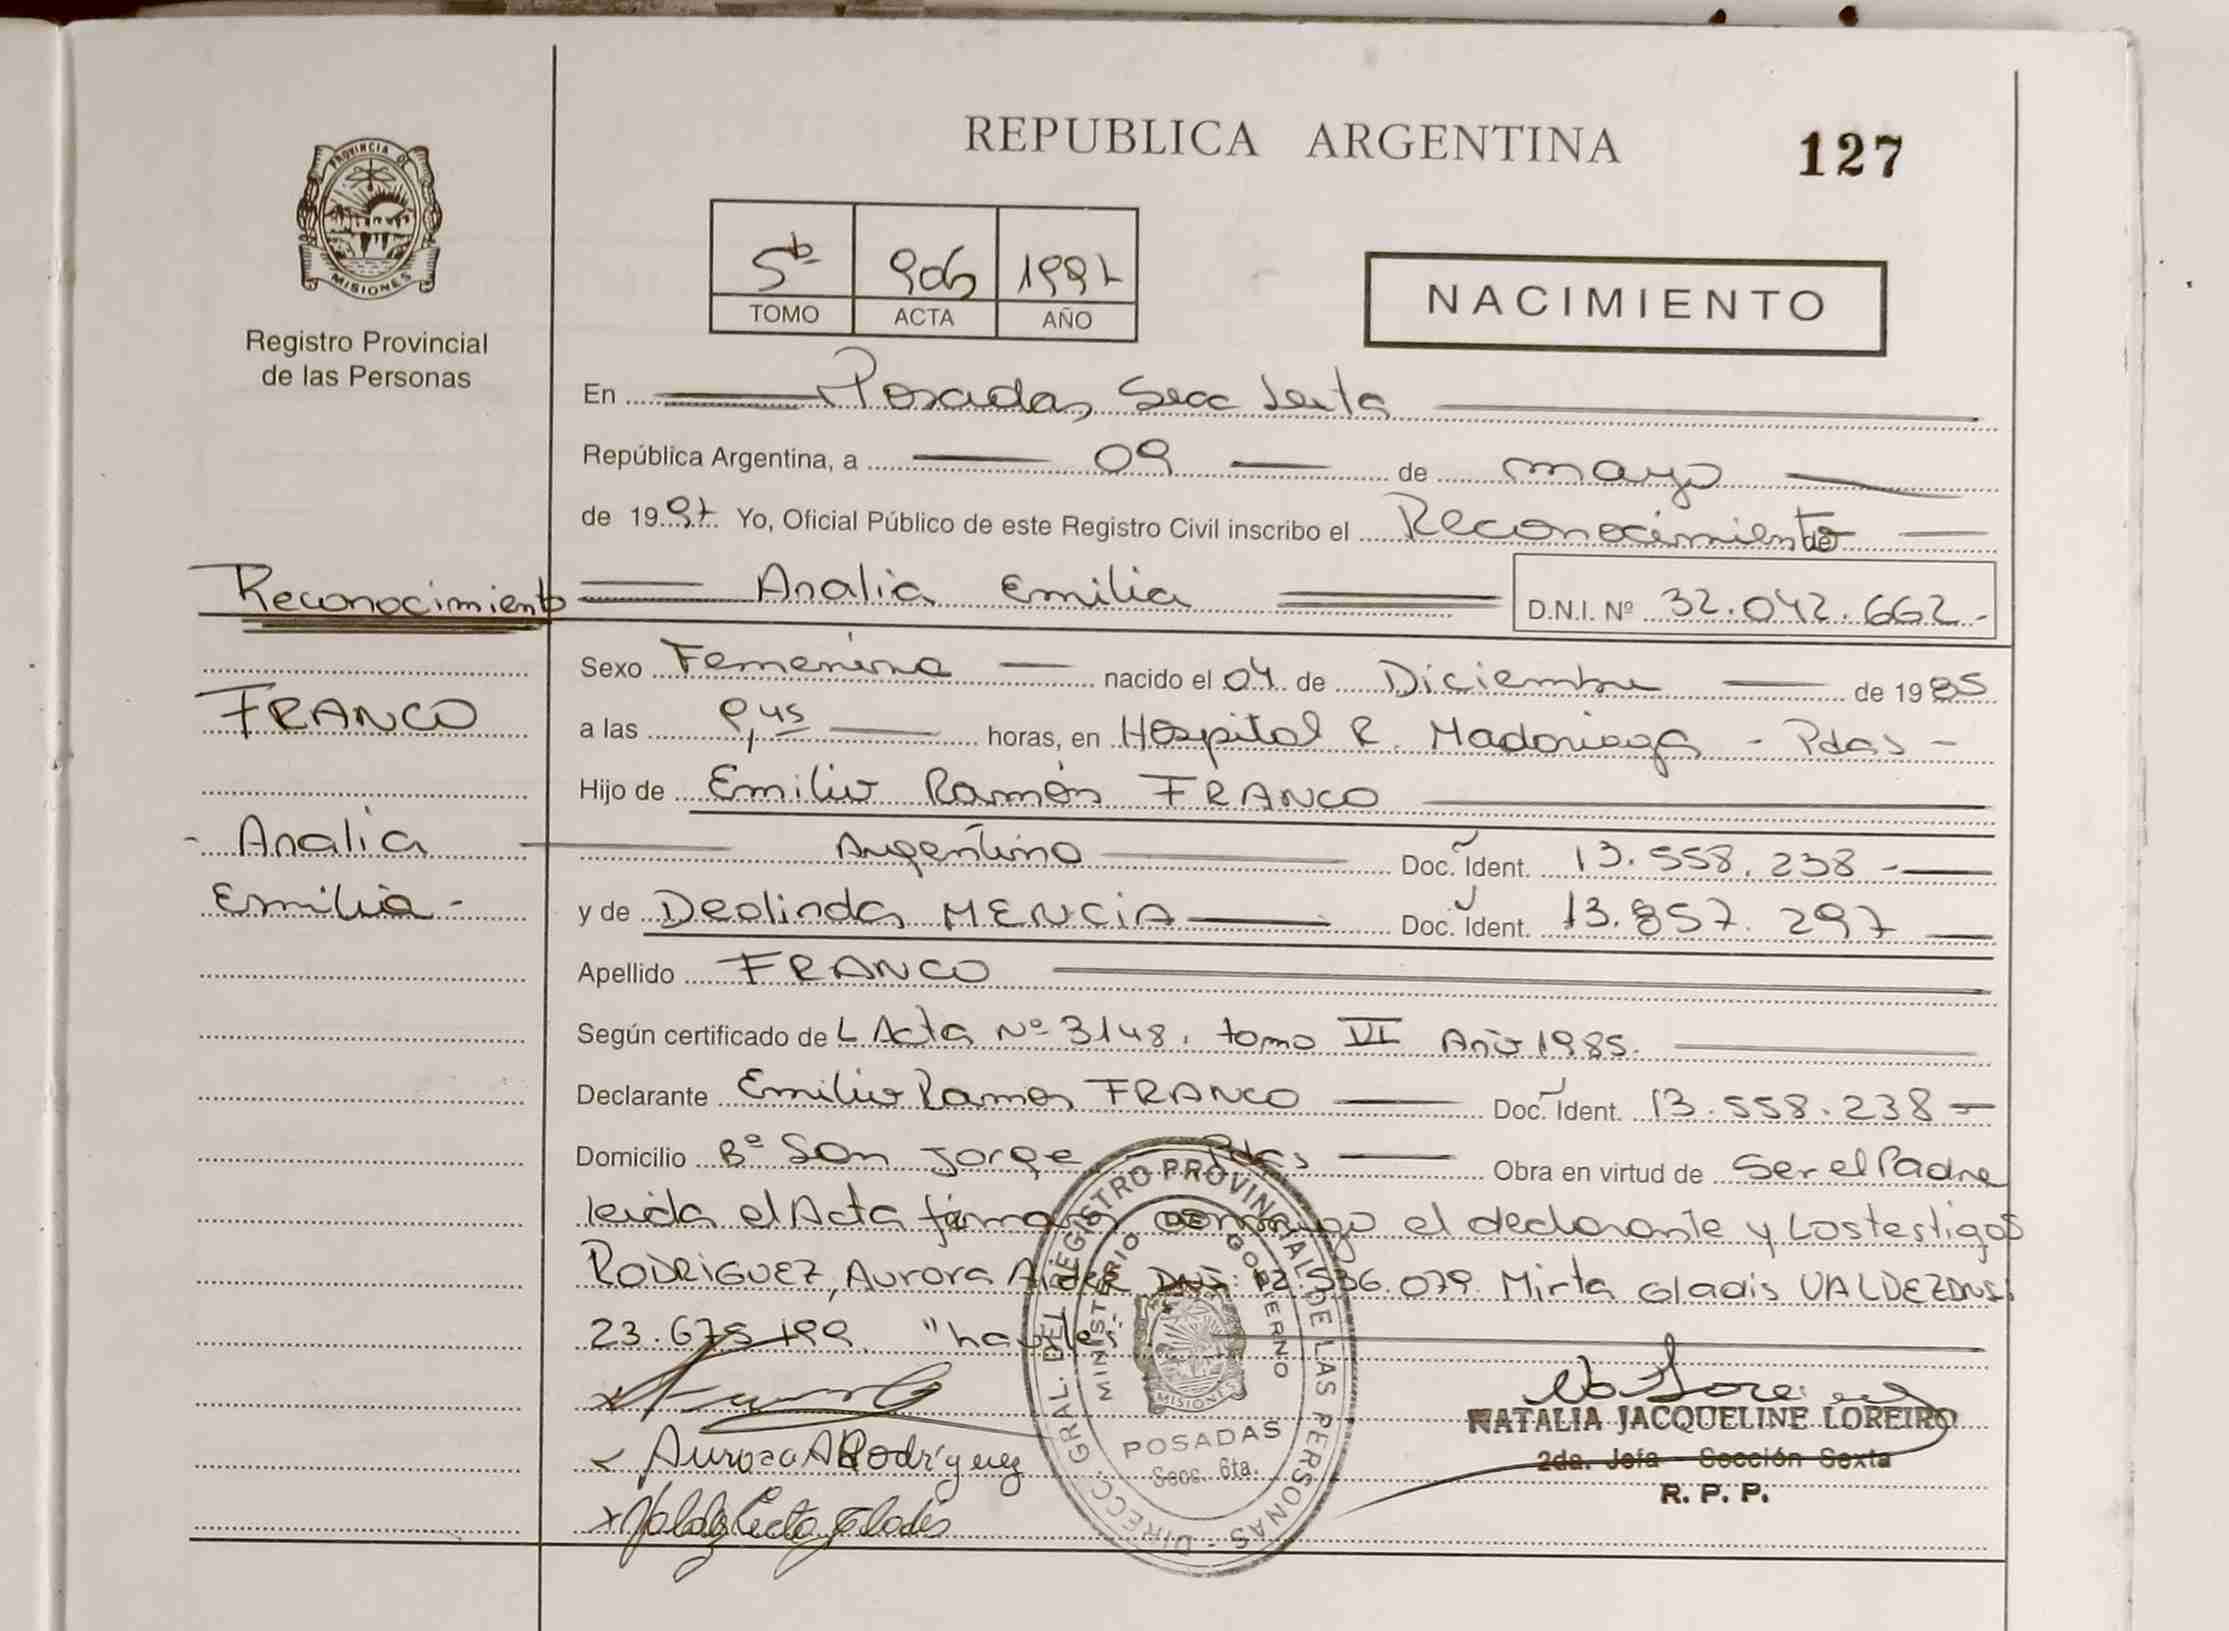 REPUBLICA ARGENTINA
127
PROVINCIA DE
MISIONES
Registro Provincial
de las Personas
5b 906 1997
TOMO ACTA AÑO
NACIMIENTO
En Posadas Secc Sexta
República Argentina, a 09 de mayo
de 1997 Yo, Oficial Público de este Registro Civil inscribo el Reconocimiento de
Reconocimiento
Analia Emilia D.N.I. Nº 32.042.662.-
Sexo Femenina nacido el 04 de Diciembre de 1985
FRANCO
a las 9,45 horas, en Hospital R. Madariaga - Pdas -
Hijo de Emilio Ramón FRANCO
- Analia
Argentino Doc. Ident. 13.558.238 -
Emilia -
y de Deolinda MENCIA Doc. Ident. 13.857.297
Apellido FRANCO
Según certificado de L Acta Nº 3148, tomo VI Año 1985.
Declarante Emilio Ramon FRANCO Doc. Ident. 13.558.238 -
Domicilio Bº San Jorge - Pdas Obra en virtud de Ser el Padre
leida el Acta firman conmigo el declarante y los testigos
RODRIGUEZ, Aurora Aidee DNI: 12.536.079. Mirta Gladis VALDEZ DNI:
23.675.199.
Aurora A Rodríguez
NATALIA JACQUELINE LOREIRO
2da. Jefa - Sección Sexta
R. P. P.
DIRECC. GRAL. DEL REGISTRO PROVINCIAL DE LAS PERSONAS -
MINISTERIO DE GOBIERNO
MISIONES
POSADAS
Secc. 6ta.